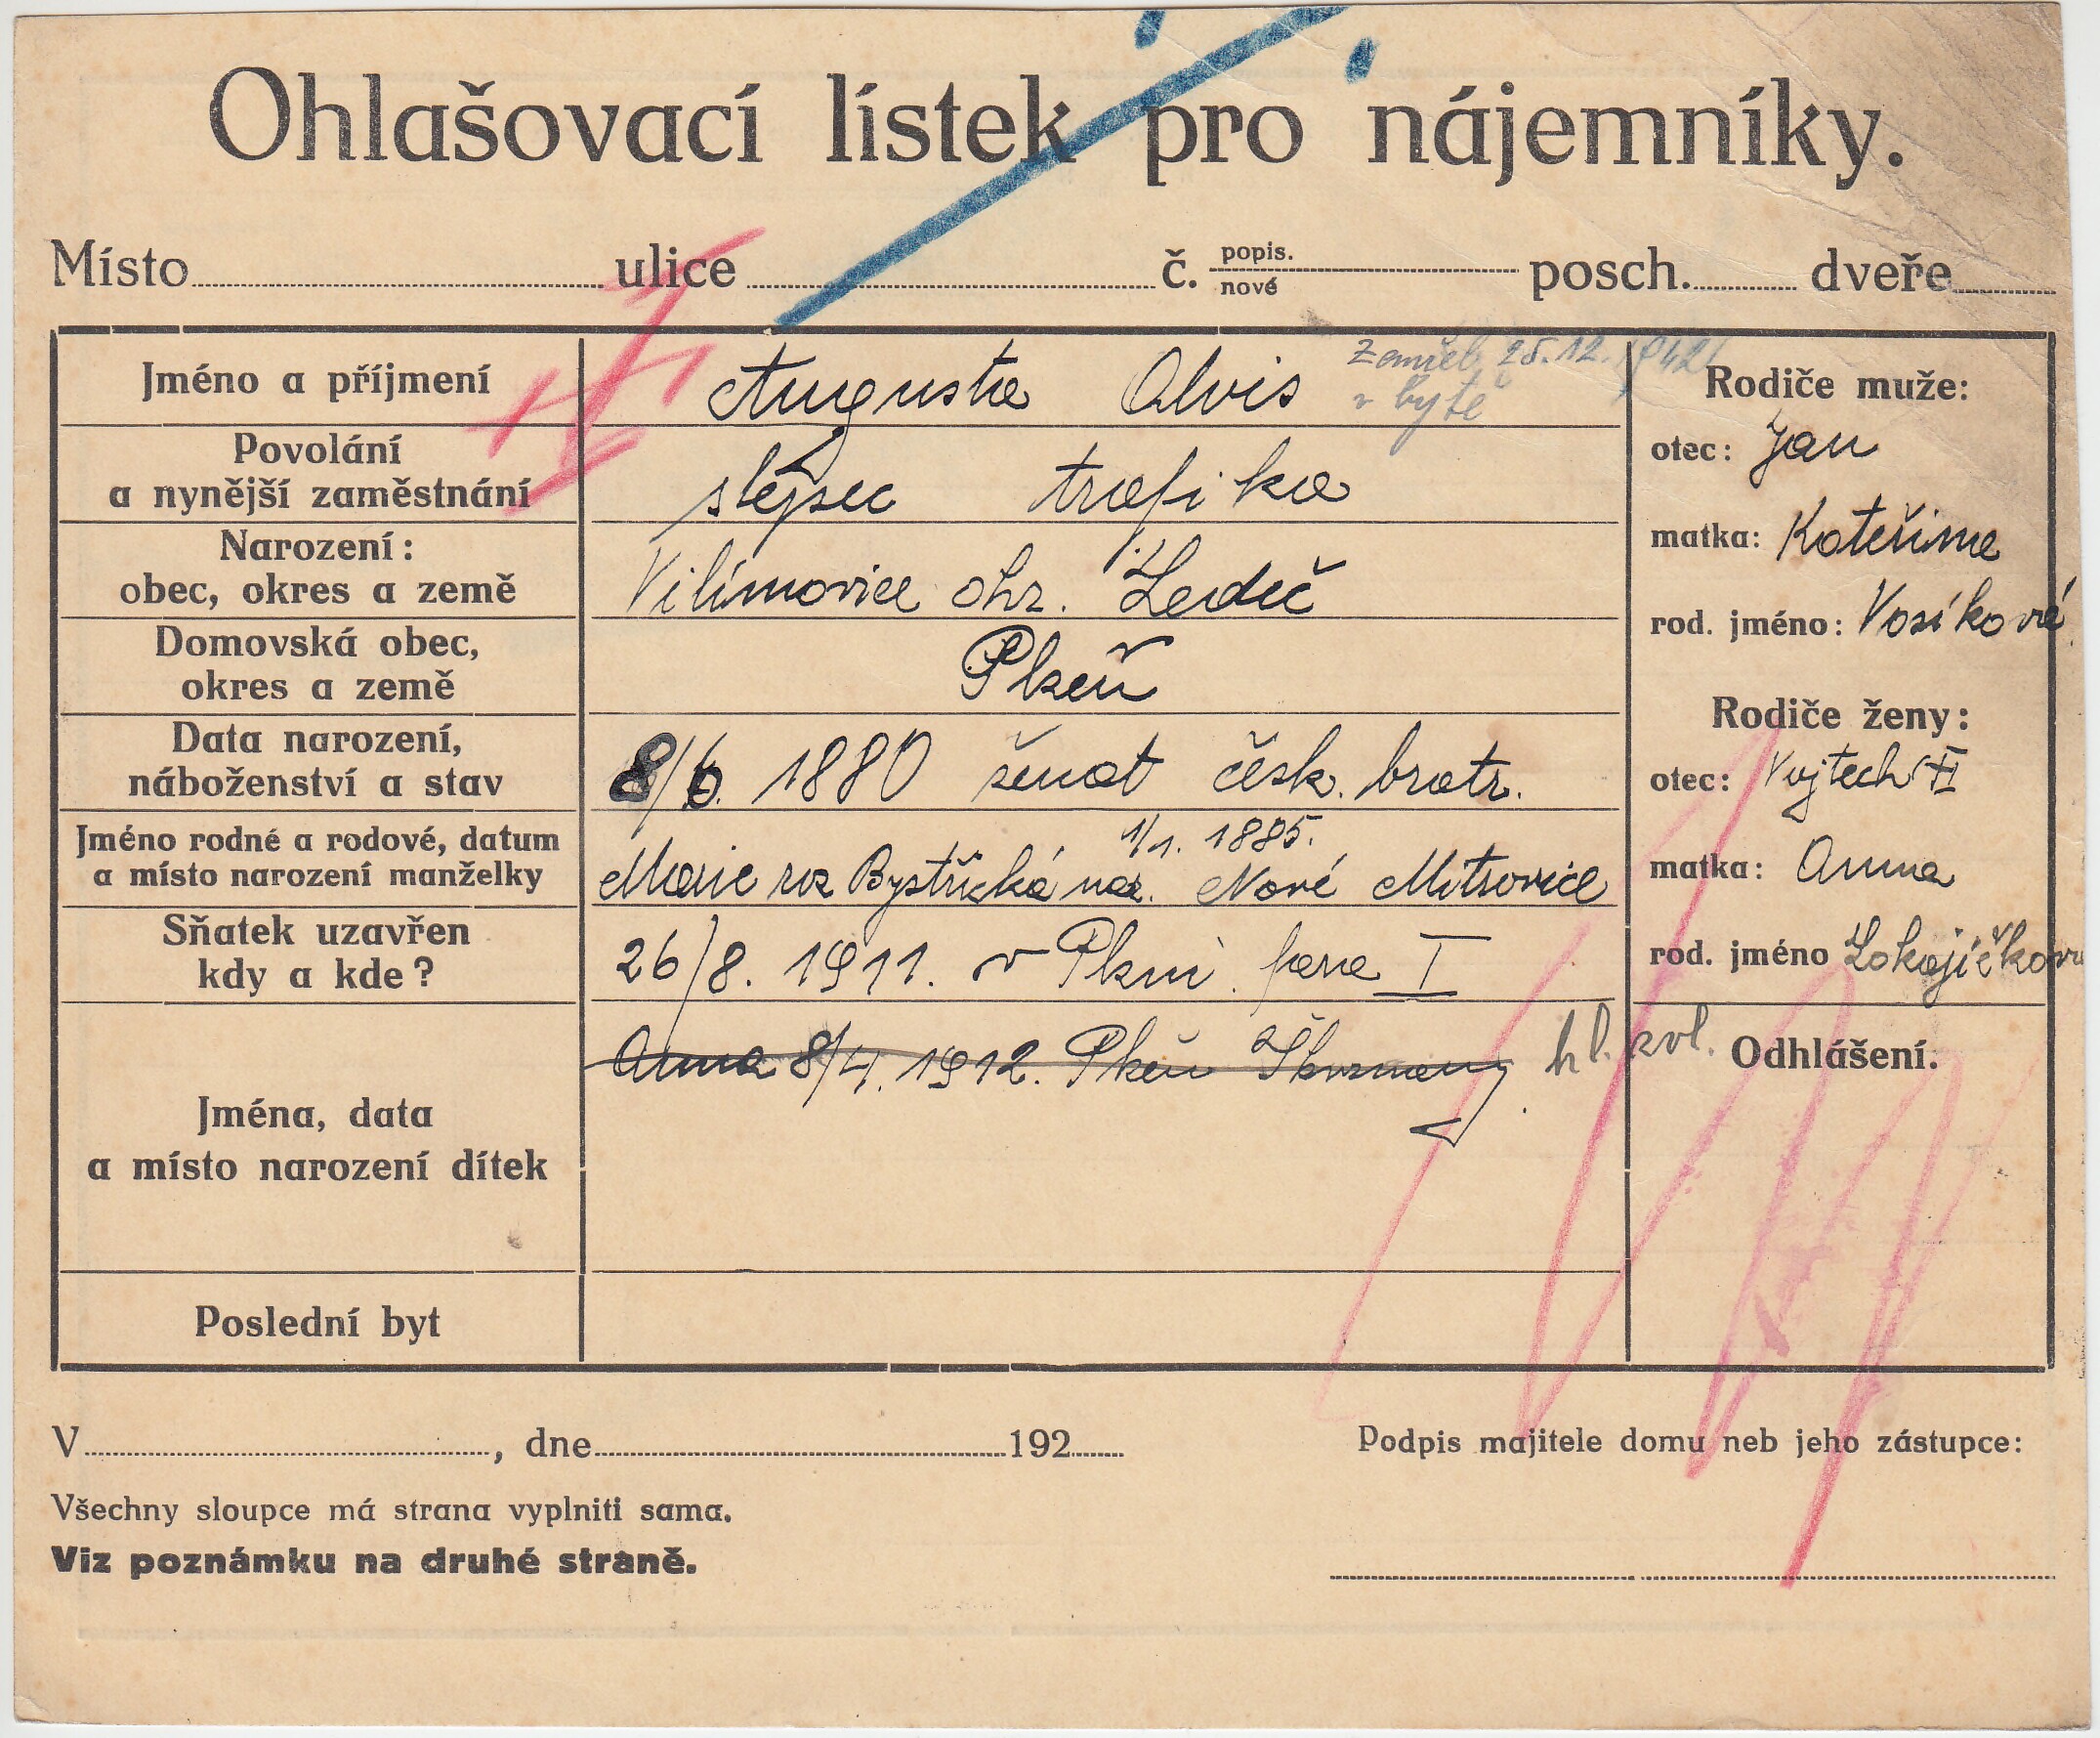 Ohlašovací lístek pro nájemníky.
Místo ulice č. popis. nové posch. dveře
Jméno a příjmení Augusta Alois Zemřel 25.12.1942 v bytě
Povolání
a nynější zaměstnání slepec trafika
Narození:
obec, okres a země Vilímovice okr. Ledeč
Domovská obec,
okres a země Plzeň
Data narození,
náboženství a stav 8/6. 1880 ženat česk. bratr.
Jméno rodné a rodové, datum
a místo narození manželky 1/1. 1885.
Marie roz Bystřická nar. Nové Mitrovice
Sňatek uzavřen
kdy a kde? 26/8. 1911. v Plzni. fara I
Jména, data
a místo narození dítek Anna 8/4. 1912. Plzeň Škvrňany. hl. zvl.
Poslední byt
Rodiče muže:
otec: Jan
matka: Kateřina
rod. jméno: Vosíková
Rodiče ženy:
otec: Vojtěch
matka: Anna
rod. jméno Lokajíčková
Odhlášení.
V , dne 192
Podpis majitele domu neb jeho zástupce:
Všechny sloupce má strana vyplniti sama.
Viz poznámku na druhé straně.